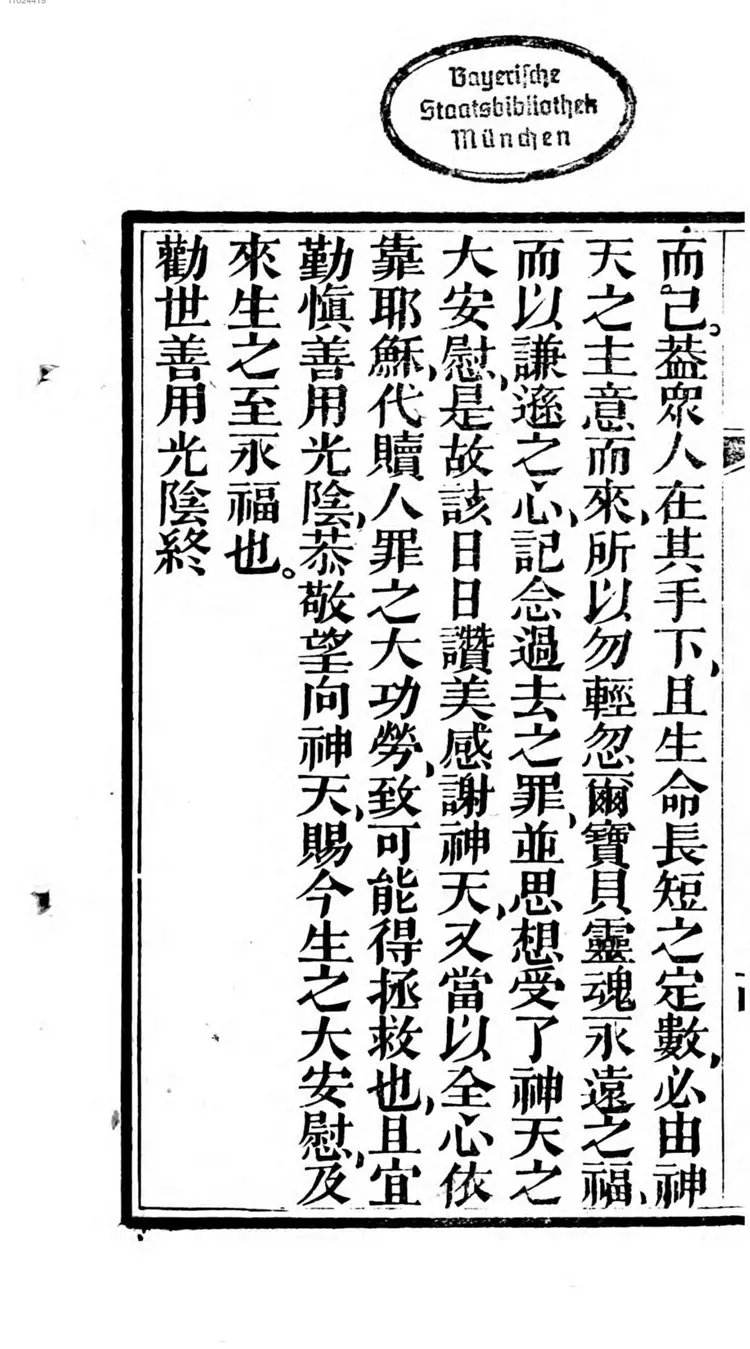 11024419
Bayerische
Staatsbibliothek
München
而已。葢眾人在其手下，且生命長短之定數，必由神
天之主意而來，所以勿輕忽爾寶貝靈魂永遠之福、
而以謙遜之心，記念過去之罪，並思想受了神天之
大安慰，是故該日日讚美感謝神天，又當以全心依
靠耶穌，代贖人罪之大功勞，致可能得拯救也，且宜
勤慎善用光陰，恭敬望向神天，賜今生之大安慰，及
來生之至永福也。
勸世善用光陰終